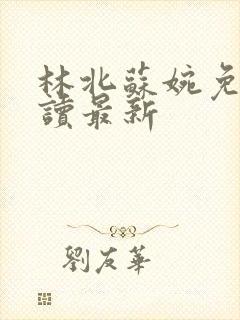 林北蘇婉免
讀最新
劉友華